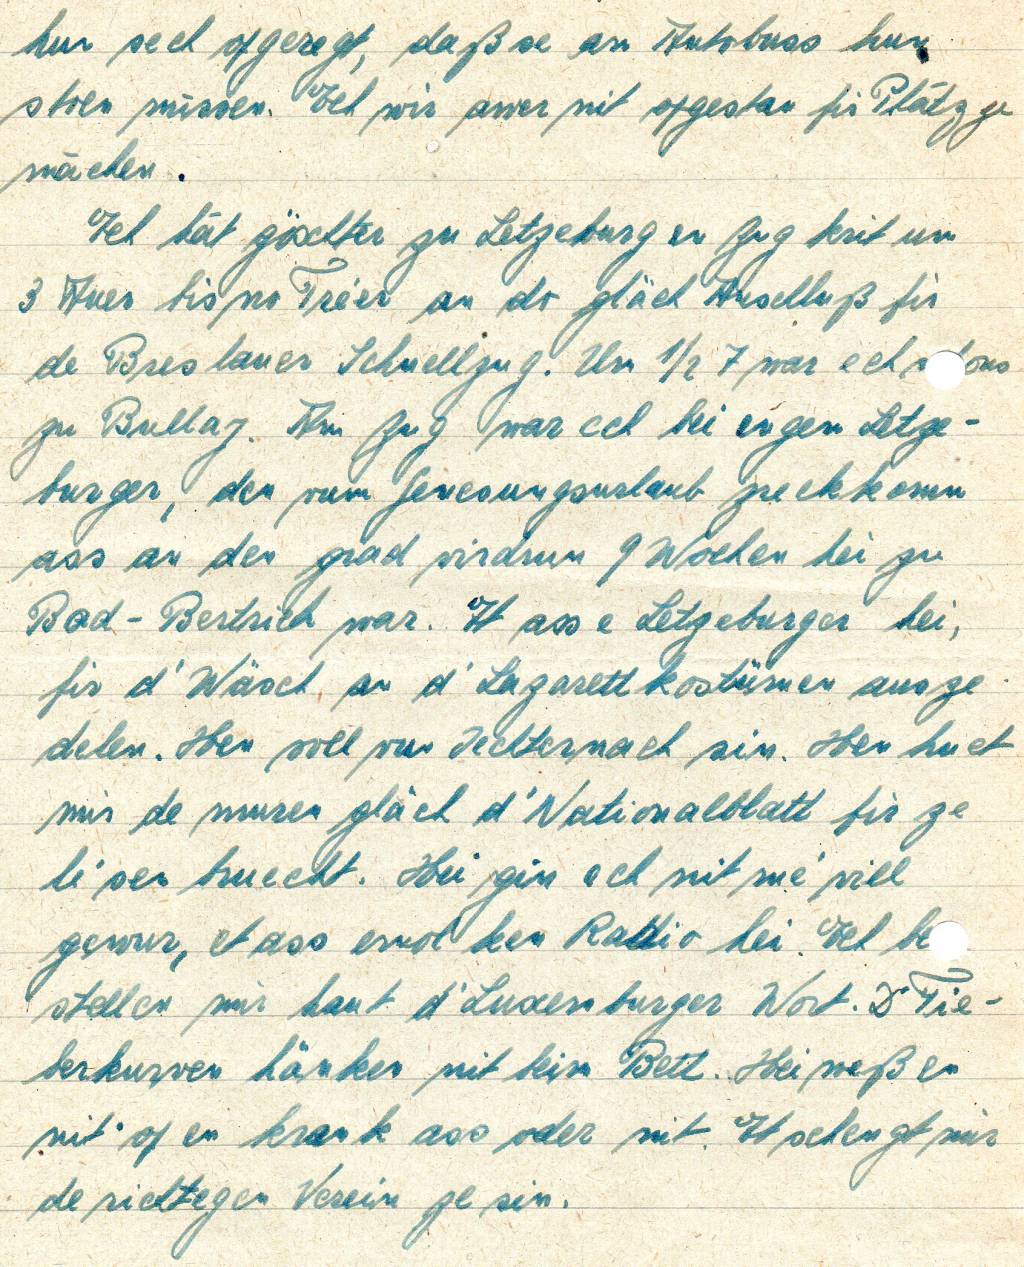 hun sech opgeregt, daß se am Autobuss hun
stoen müssen. Ech wir awer nit opgestan fir Plätz ze
mächen.
Ech hät göschter zu Letzeburg en Zug krit um
3 Auer bis no Tréier an do gläch Anschluß fir
de Breslauer Schnellzug. Um 1/2 7 war ech
zu Bullay. Am Zug war ech bei engem Letze-
burger, den vum Genesungsurlaub zreckkomm
ass an den grad virdrun 9 Wochen hei zu
Bad-Bertrich war. Et ass e Letzeburger hei,
fir d'Wäsch an d'Lazarettkostümen ausze
delen. Hen soll vun Iechternach sin. Hen huet
mir de muren gläch d'Nationalblatt fir ze
liesen bruecht. Hei gin ech nit mé vill
gewuer, et ass emol ken Radio hei. Ech be
stellen mir haut d'Luxemburger Wort. D' Fie-
berkurven hänken nit beim Bett. Hei weß en
nit op en krank ass oder nit. Et schengt mir
de richtegen Verein ze sin.